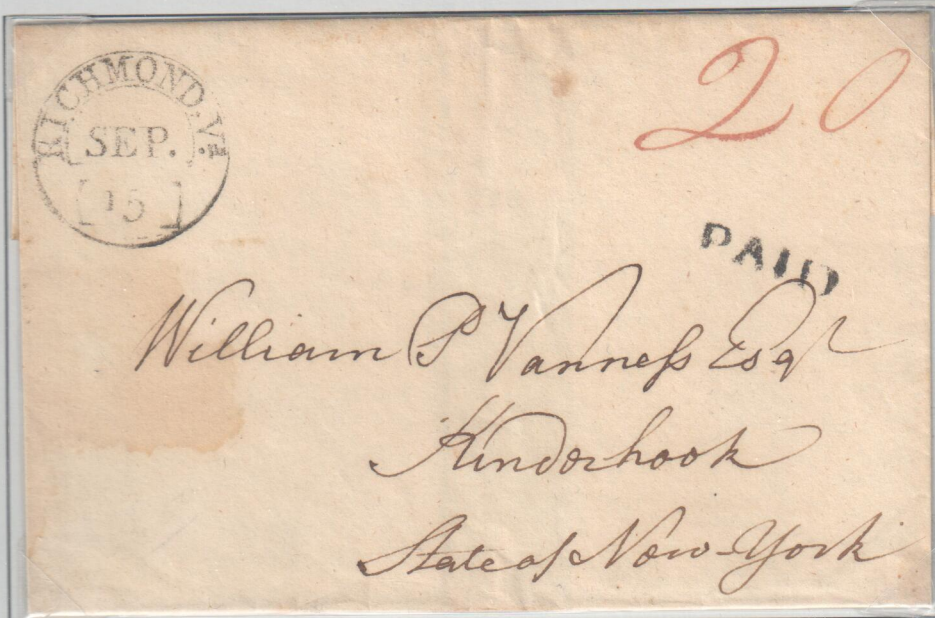 RICHMOND. Va.
SEP.
15
20
PAID
William P Vanness Esqr
Kinderhook
State of New-York